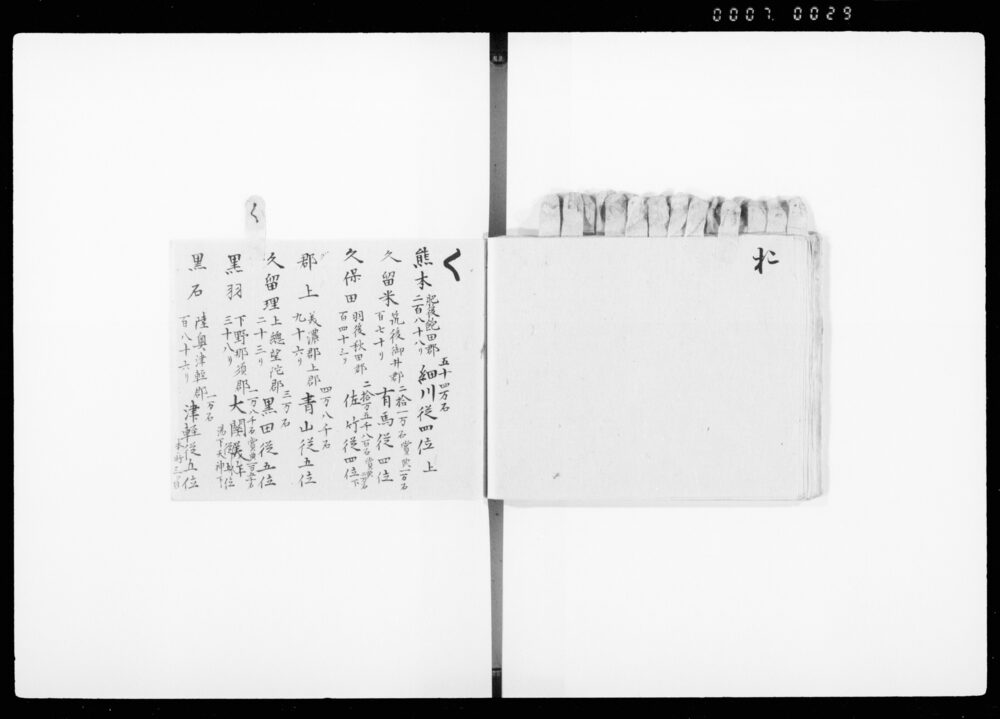 0007 0029
お
く
熊本 肥後飽田郡 二百八十八リ 五十四万石 細川従四位上
久留米 筑後御井郡 百七十リ 二拾一万石 賞典一万石 有馬従四位
久保田 羽後秋田郡 百四十三リ 二拾万五千八百石 賞典二万石 佐竹従四位下
郡上 美濃郡上郡 九十六リ 四万八千石 青山従五位
久留理 上総望陀郡 二十三リ 三万石 黒田従五位
黒羽 下野那須郡 三十八リ 一万八千石 大関 従五位
黒石 陸奥津軽郡 百八十六リ 一万石 津軽従五位
く